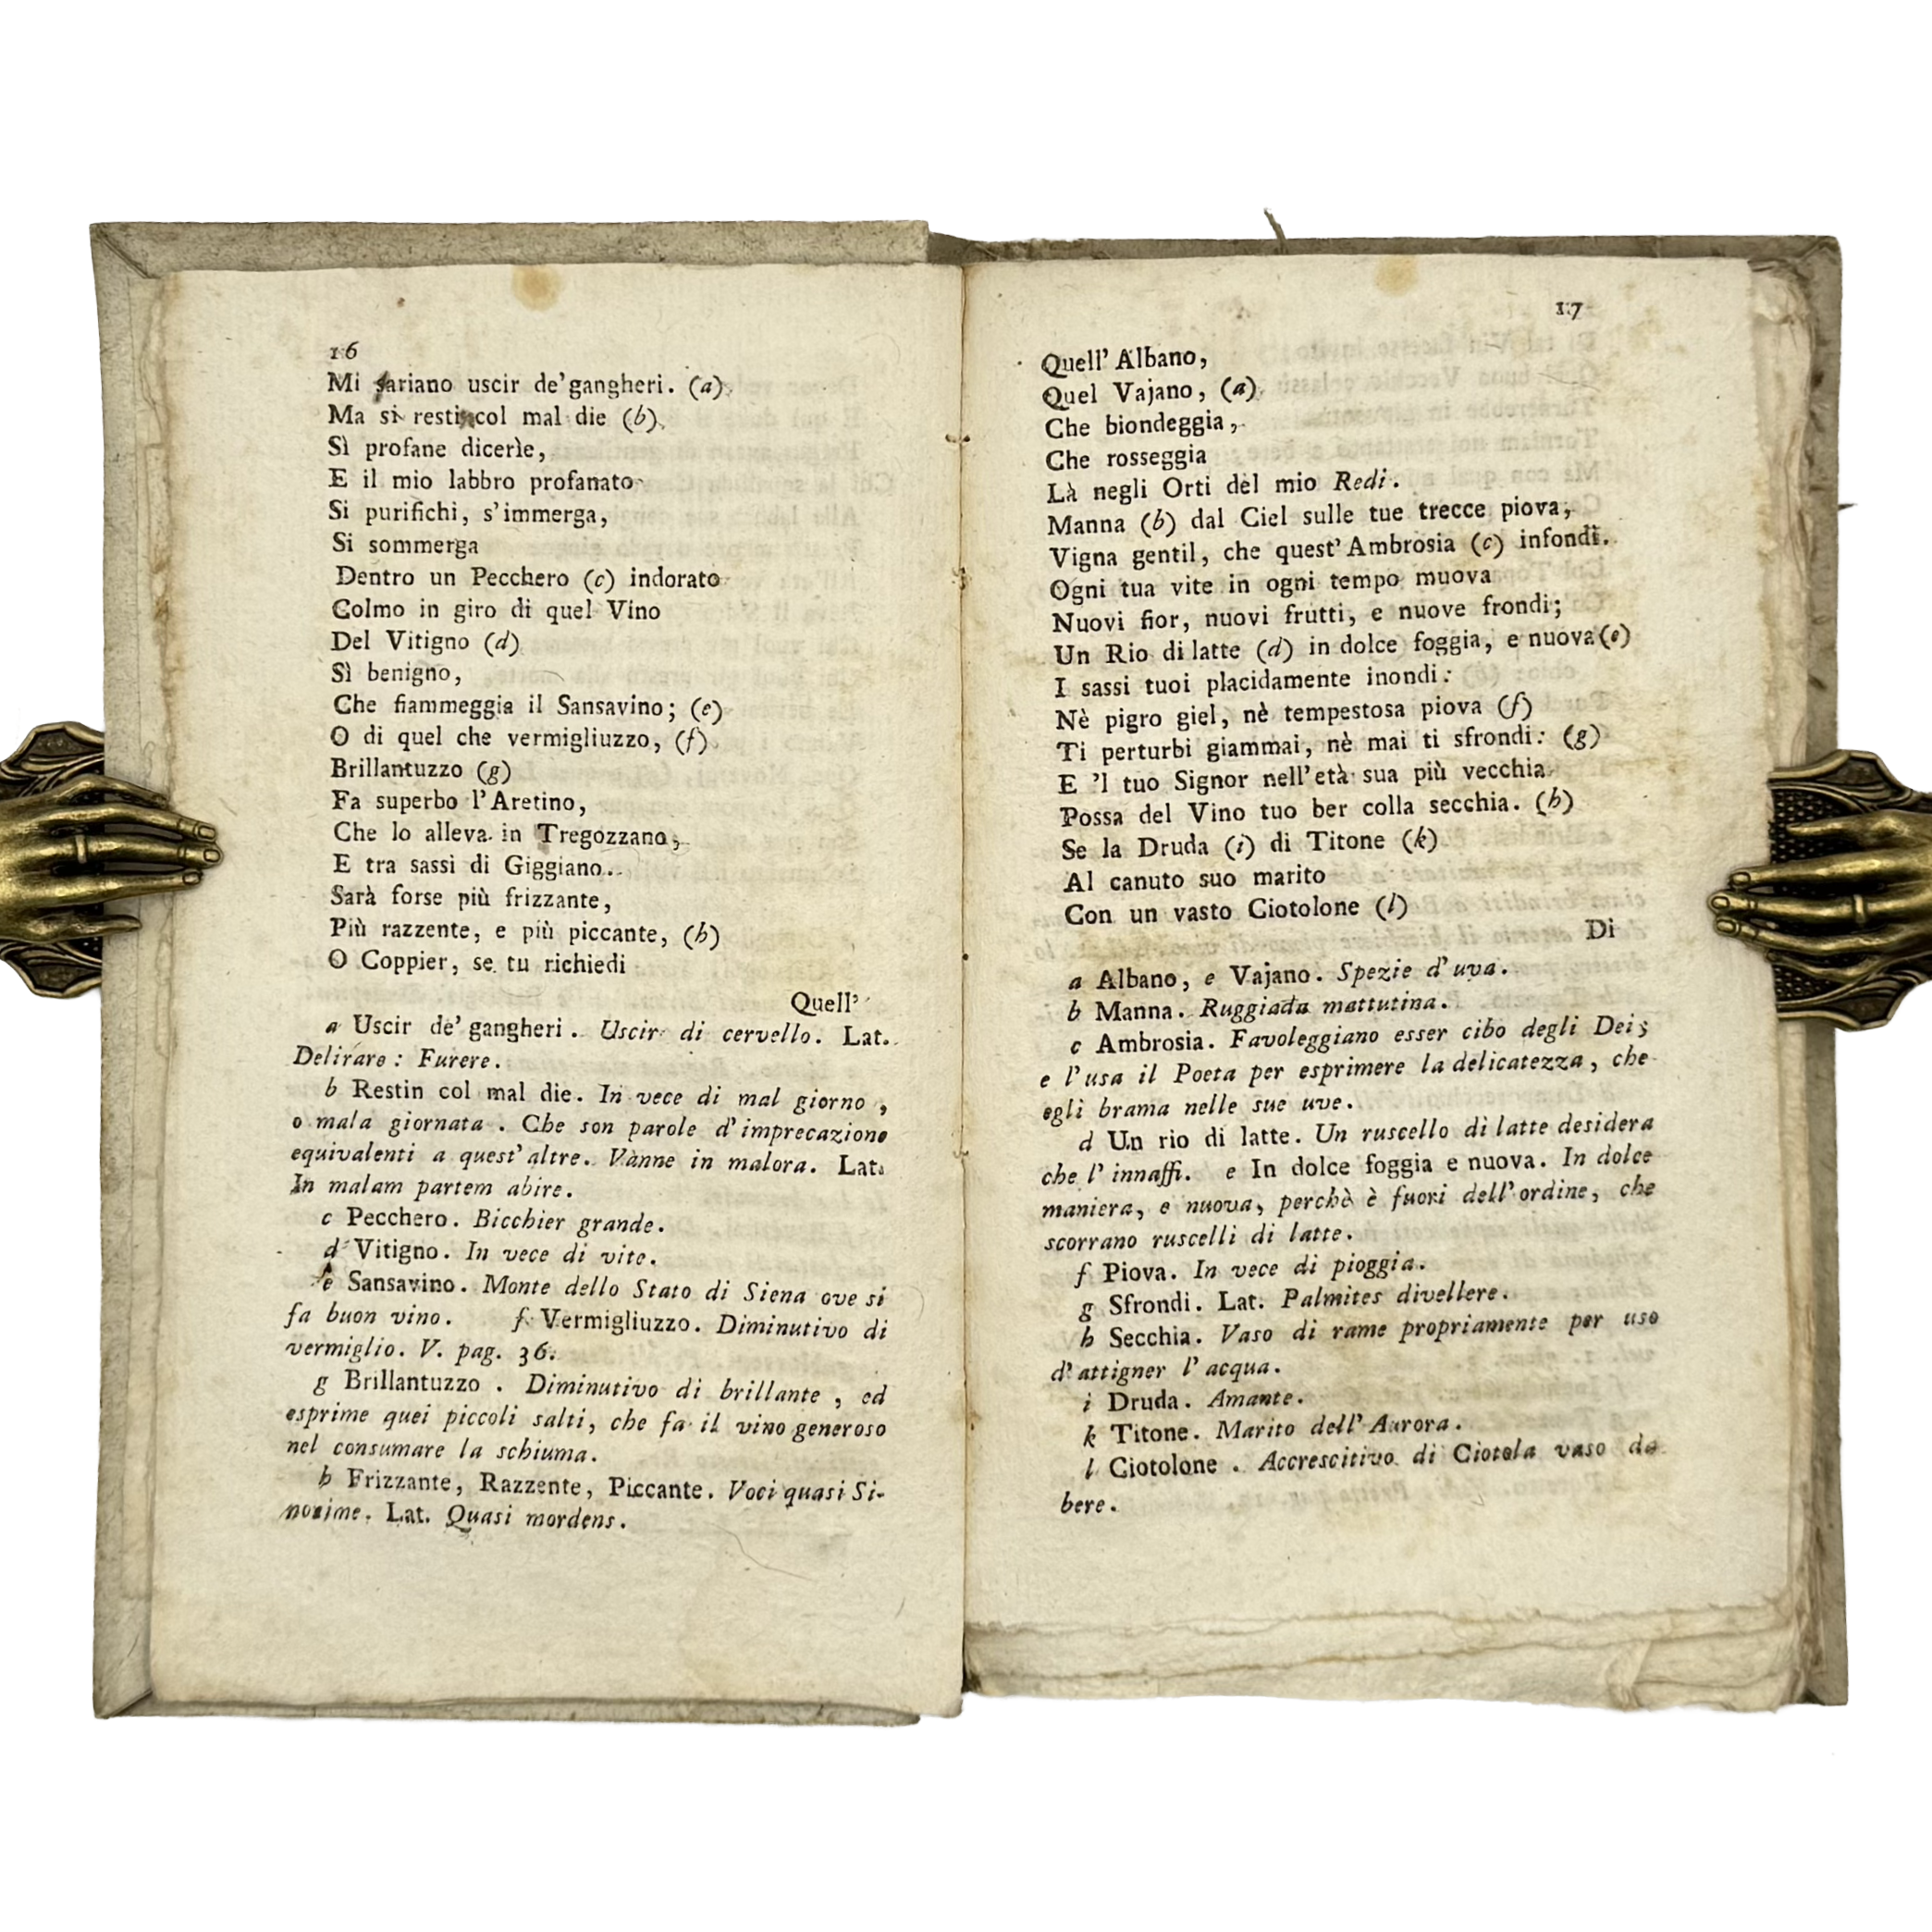 16
Mi fariano uscir de'gangheri. (a)
Ma si restin col mal die (b)
Sì profane dicerìe,
E il mio labbro profanato
Si purifichi, s'immerga,
Si sommerga
Dentro un Pecchero (c) indorato
Colmo in giro di quel Vino
Del Vitigno (d)
Sì benigno,
Che fiammeggia il Sansavino; (e)
O di quel che vermigliuzzo, (f)
Brillantuzzo (g)
Fa superbo l'Aretino,
Che lo alleva in Tregozzano,
E tra sassi di Giggiano.
Sarà forse più frizzante,
Più razzente, e più piccante, (h)
O Coppier, se tu richiedi
Quell'
a Uscir de' gangheri. Uscir di cervello. Lat.
Delirare: Furere.
b Restin col mal die. In vece di mal giorno,
o mala giornata. Che son parole d'imprecazione
equivalenti a quest'altre. Vànne in malora. Lat.
In malam partem abire.
c Pecchero. Bicchier grande.
d Vitigno. In vece di vite.
e Sansavino. Monte dello Stato di Siena ove si
fa buon vino. f Vermigliuzzo. Diminutivo di
vermiglio. V. pag. 36.
g Brillantuzzo. Diminutivo di brillante, ed
esprime quei piccoli salti, che fa il vino generoso
nel consumare la schiuma.
h Frizzante, Razzente, Piccante. Voci quasi Si-
nonime. Lat. Quasi mordens.
17
Quell' Albano,
Quel Vajano, (a)
Che biondeggia,
Che rosseggia
Là negli Orti del mio Redi.
Manna (b) dal Ciel sulle tue trecce piova,
Vigna gentil, che quest'Ambrosia (c) infondi.
Ogni tua vite in ogni tempo muova
Nuovi fior, nuovi frutti, e nuove frondi;
Un Rio di latte (d) in dolce foggia, e nuova (e)
I sassi tuoi placidamente inondi:
Nè pigro giel, nè tempestosa piova (f)
Ti perturbi giammai, nè mai ti sfrondi: (g)
E 'l tuo Signor nell'età sua più vecchia
Possa del Vino tuo ber colla secchia. (h)
Se la Druda (i) di Titone (k)
Al canuto suo marito
Con un vasto Ciotolone (l)
Di
a Albano, e Vajano. Spezie d'uva.
b Manna. Ruggiada mattutina.
c Ambrosia. Favoleggiano esser cibo degli Dei;
e l'usa il Poeta per esprimere la delicatezza, che
egli brama nelle sue uve.
d Un rio di latte. Un ruscello di latte desidera
che l'innaffi. e In dolce foggia e nuova. In dolce
maniera, e nuova, perchè è fuori dell'ordine, che
scorrano ruscelli di latte.
f Piova. In vece di pioggia.
g Sfrondi. Lat. Palmites divellere.
h Secchia. Vaso di rame propriamente per uso
d'attigner l'acqua.
i Druda. Amante.
k Titone. Marito dell'Aurora.
l Ciotolone. Accrescitivo di Ciotola vaso da
bere.